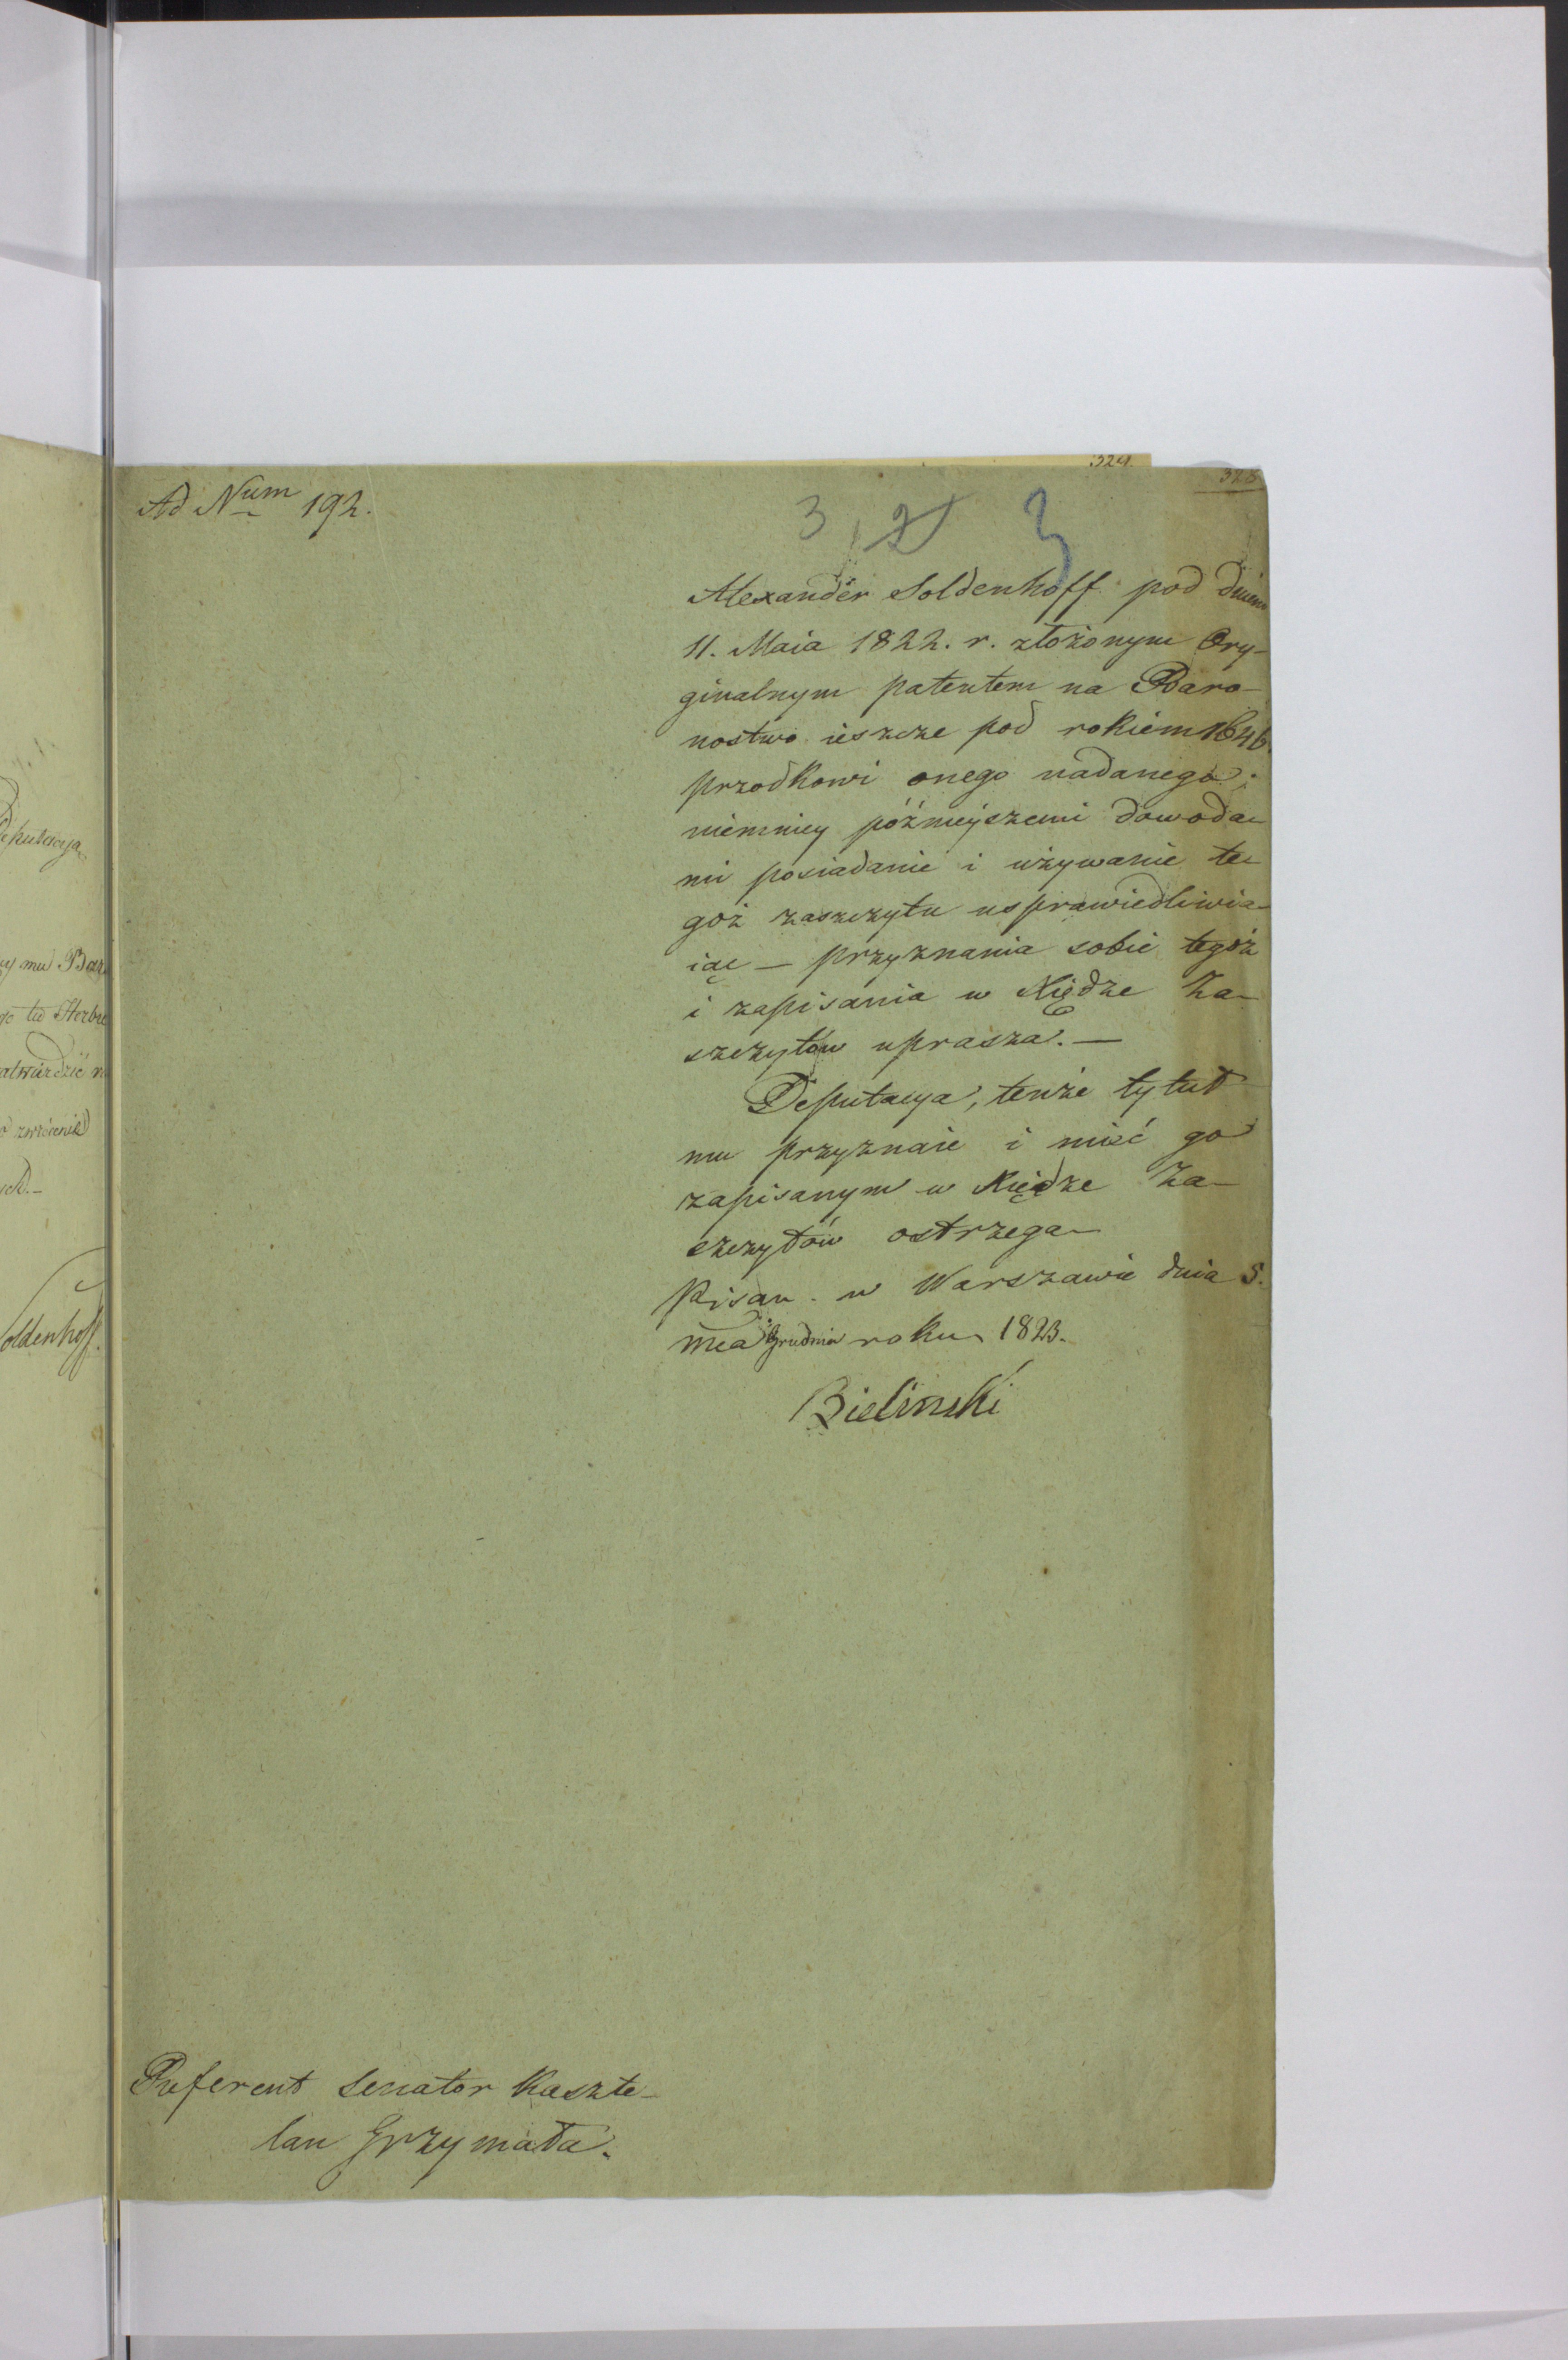 324.
325
Ad Num 192.
3 2 3
Alexander Soldenhoff pod dniem
11. Maia 1822. r. złożonym Ory-
ginalnym patentem na Baro-
nostwo ieszcze pod rokiem 1646
przodkowi onego nadanego;
niemniey późnieyszemi dowoda-
mi posiadanie i używanie te-
goż zaszczytu usprawiedliwia-
iąc — przyznania sobie tegoż
i zapisania w Xiędze Za-
szczytów uprasza. —
Deputacya, tenże tytuł
mu przyznaie i mieć go
zapisanym w Xiędze Za-
szczytów ostrzega —
Pisan w Warszawie dnia 5.
mca Grudnia roku 1823.
Bielinski
Referent Senator Kaszte-
lan Grzymała.
Deputacya
mu Bar
Herbu
oldenhoff.